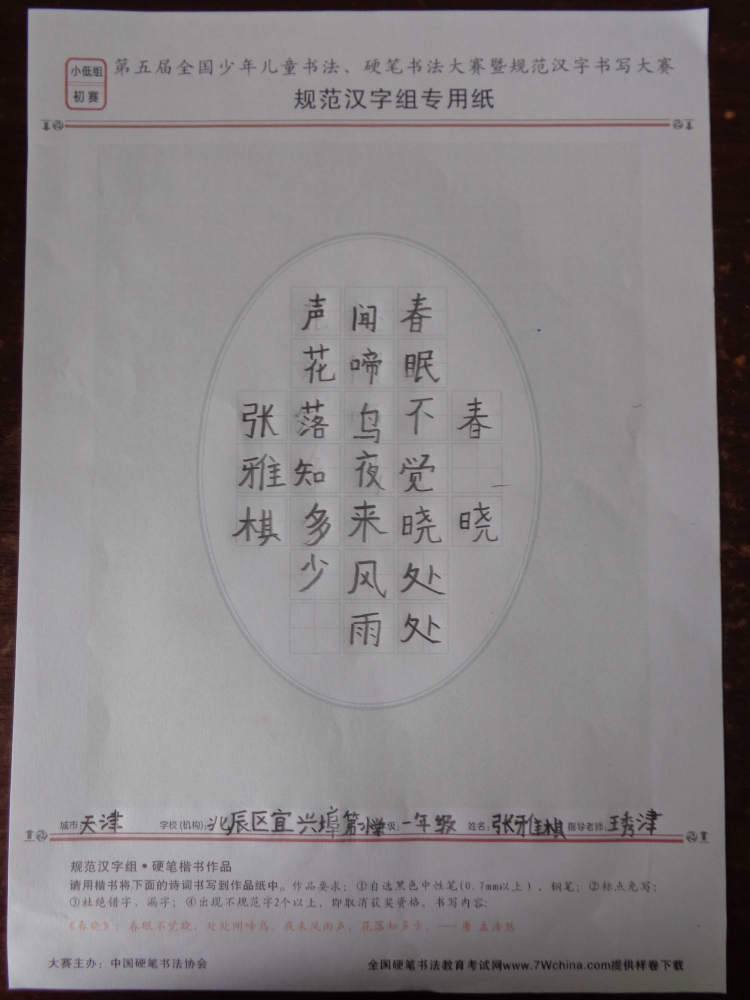 小低组
初赛
第五届全国少年儿童书法、硬笔书法大赛暨规范汉字书写大赛
规范汉字组专用纸
春晓
春眠不觉晓处处
闻啼鸟夜来风雨
声花落知多少
张雅棋
城市:天津 学校(机构):北辰区宜兴埠第小学 年级:一年级 姓名:张雅棋 指导老师:王秀津
规范汉字组·硬笔楷书作品
请用楷书将下面的诗词书写到作品纸中。作品要求:①自选黑色中性笔(0.7mm以上)、钢笔;②标点免写;
③杜绝错字,漏字;④出现不规范字2个以上,即取消获奖资格。书写内容:
《春晓》:春眠不觉晓,处处闻啼鸟。夜来风雨声,花落知多少。——唐 孟浩然
大赛主办:中国硬笔书法协会 全国硬笔书法教育考试网www.7Wchina.com提供样卷下载